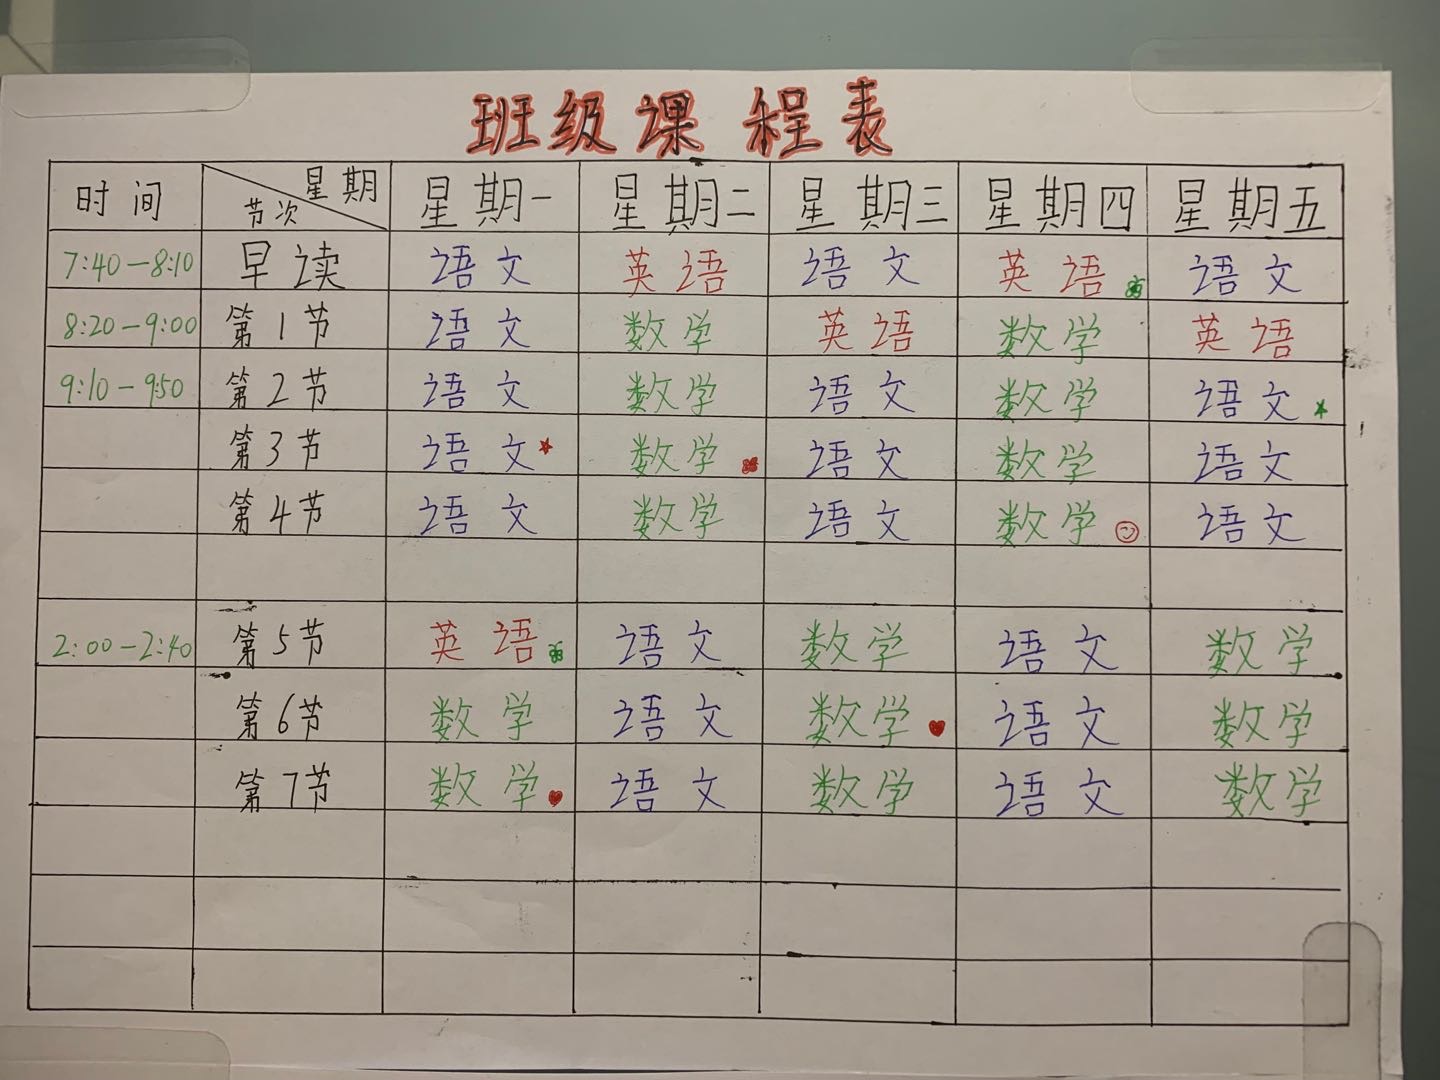 班级课程表
时间 节次 星期 星期一 星期二 星期三 星期四 星期五
7:40-8:10 早读 语文 英语 语文 英语 语文
8:20-9:00 第1节 语文 数学 英语 数学 英语
9:10-9:50 第2节 语文 数学 语文 数学 语文
第3节 语文 数学 语文 数学 语文
第4节 语文 数学 语文 数学 语文
2:00-2:40 第5节 英语 语文 数学 语文 数学
第6节 数学 语文 数学 语文 数学
第7节 数学 语文 数学 语文 数学